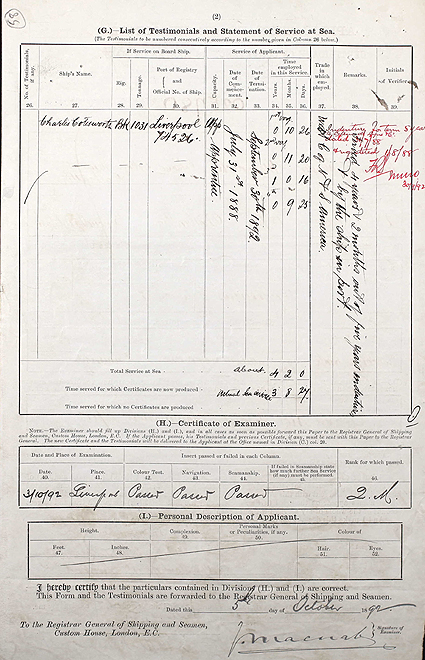 (2)
(G.)—List of Testimonials and Statement of Service at Sea.
(The Testimonials to be numbered consecutively according to the number given in Column 26 below.)
No. of Testimonials, if any.
26.
If Service on Board Ship.
Ship's Name.
27.
Rig.
28.
Tonnage.
29.
Port of Registry and Official No. of Ship.
30.
Service of Applicant.
Capacity.
31.
Date of Commencement.
32.
Date of Termination.
33.
Time employed in this Service.
Years.
34.
Months.
35.
Days.
36.
Trade in which employed.
37.
Remarks.
38.
Initials of Verifier.
39.
Charles Cotesworth Bk 1031 Liverpool
Apprentice
July 31st 1888.
September 30th 1892
0 10 26
0 11 20
1 0 16
0 9 25
S. America.
4 years 2 months out of five years
by the ship in port.
1/8/88
Total Service at Sea about 4 2 0
Time served for which Certificates are now produced Actual Sea Service 3 8 27
Time served for which no Certificates are produced
(H.)—Certificate of Examiner.
NOTE.—The Examiner should fill up Divisions (H.) and (I.), and in all cases as soon as possible forward this Paper to the Registrar General of Shipping and Seamen, Custom House, London, E.C. If the Applicant passes, his Testimonials and previous Certificate, if any, must be sent with this Paper to the Registrar General. The new Certificate and the Testimonials will be delivered to the Applicant at the Office named in Division (C.) col. 20.
Date and Place of Examination.
Insert passed or failed in each Column.
If failed in Seamanship state how much further Sea Service (if any) must be performed.
45.
Rank for which passed.
46.
Date.
40.
Place.
41.
Colour Test.
42.
Navigation.
43.
Seamanship.
44.
3/10/92 Liverpool Passed Passed Passed 2. M.
(I.)—Personal Description of Applicant.
Height.
Feet.
47.
Inches.
48.
Complexion.
49.
Personal Marks or Peculiarities, if any.
50.
Colour of
Hair.
51.
Eyes.
52.
I hereby certify that the particulars contained in Divisions (H.) and (I.) are correct.
This Form and the Testimonials are forwarded to the Registrar General of Shipping and Seamen.
Dated this 5th day of October 1892
To the Registrar General of Shipping and Seamen,
Custom House, London, E.C.
Signature of Examiner.